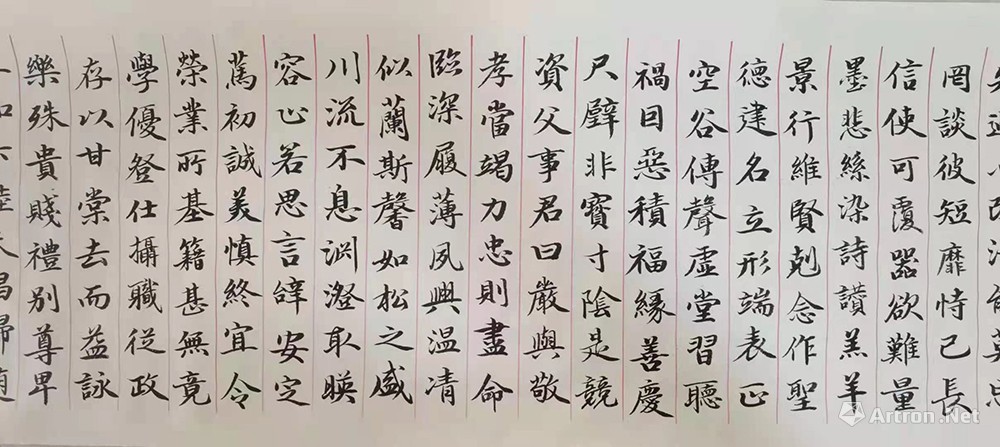 罔談彼短靡恃己長
信使可覆器欲難量
墨悲絲染詩讚羔羊
景行維賢剋念作聖
德建名立形端表正
空谷傳聲虛堂習聽
禍因惡積福緣善慶
尺璧非寶寸陰是競
資父事君曰嚴與敬
孝當竭力忠則盡命
臨深履薄夙興温凊
似蘭斯馨如松之盛
川流不息渊澄取暎
容止若思言辝安定
篤初誠美慎終宜令
榮業所基籍甚無竟
學優登仕攝職從政
存以甘棠去而益詠
樂殊貴賤禮別尊卑
Artron.Net